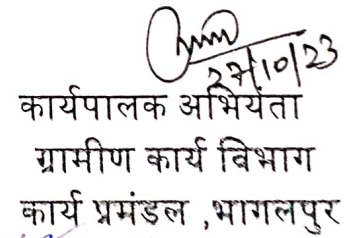 27/10/23
कार्यपालक अभियंता
ग्रामीण कार्य विभाग
कार्य प्रमंडल ,भागलपुर